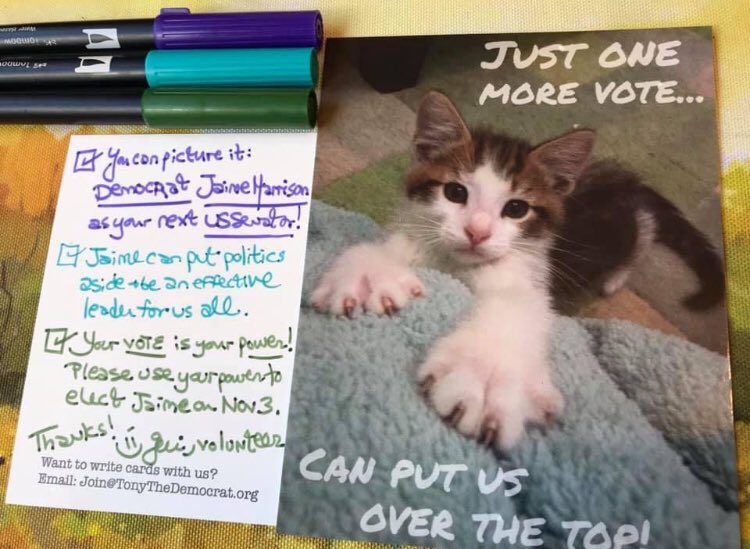 Tombow
☑ You can picture it:
DEMOCRAT Jaime Harrison
as your next US Senator!
☑ Jaime can put politics
aside + be an effective
leader for us all.
☑ Your VOTE is your power!
Please use your power to
elect Jaime on Nov 3.
Thanks! volunteer
Want to write cards with us?
Email: Join@TonyTheDemocrat.org
JUST ONE
MORE VOTE...
CAN PUT US
OVER THE TOP!